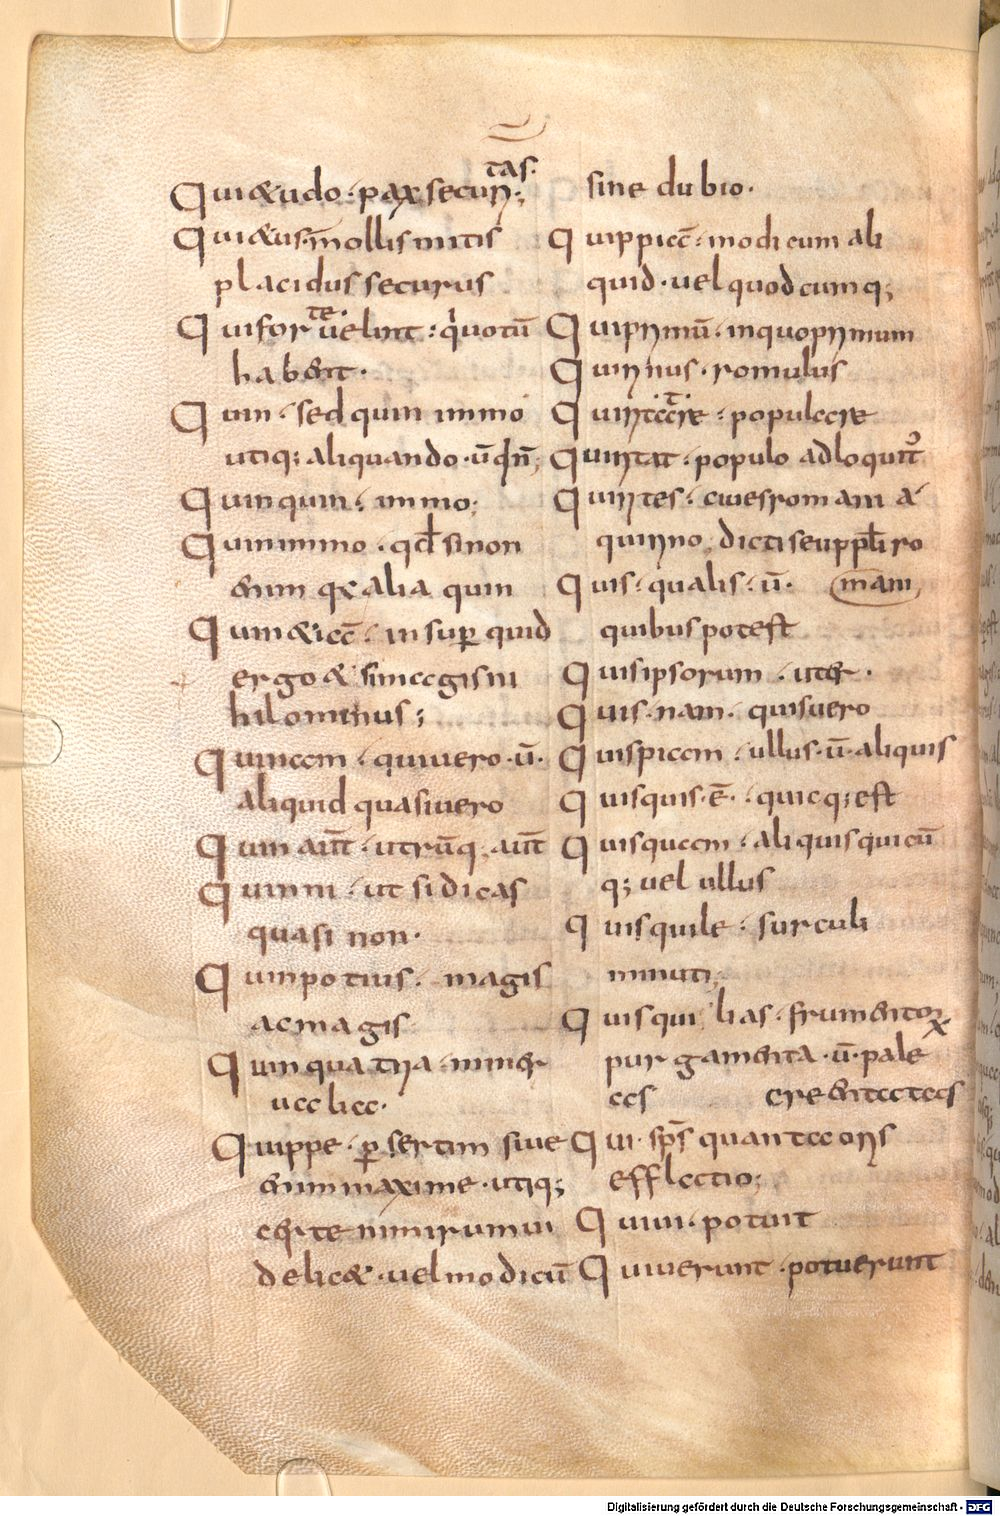 tas.
Qui&udo · pax securi;
Qui&us · mollis mitis
placidus securus
te.
Qui for uelint : quotū
habent ·
Quin · sed quin immo
utiq; aliquando · ū qn̄;
Quinquin · immo;
Quinimmo · qd si non
enim qđ alia quin
Quin&ia · insup quid
ergo & simagis ni
hilominus;
Quinam · qui uero · ū ·
aliquid quasi uero
Quin aut̄ · utrūq; aut̄
Quinni · ut si dicas
quasi non ·
Quinpotius · magis
ac magis
Quinquatria · miner
ualia ·
Quippe · p sertim siue
enim maxime · utiq;
certe nimirum ui
delic& · uel modicū
sine dubio ·
Quippiā · modicum ali
quid · uel quodcumq;
Quiprimū · in quo primum
Quirinus · romulus
Quiritare · populare
Quiritat · populo adloquit
Quirites · ciues romani a
quirino dicti seu pplī ro
mani
Quis · qualis · ū ·
quibus potest
Quis ipsorum · uter ·
Quis nam · quis uero
Quispiam · ullus · ū · aliquis
Quisquis · ē · quicq; est
Quisquam · aliquis quicū
q; uel ullus
Quisquile · surculi
minuti;
Quisquilias · frumentorx
purgamenta · ū · pale
as
Qui · sps quanta oris
efflatio;
Quiui · potuit
Quiuerunt · potuerunt
Digitalisierung gefördert durch die Deutsche Forschungsgemeinschaft - DFG